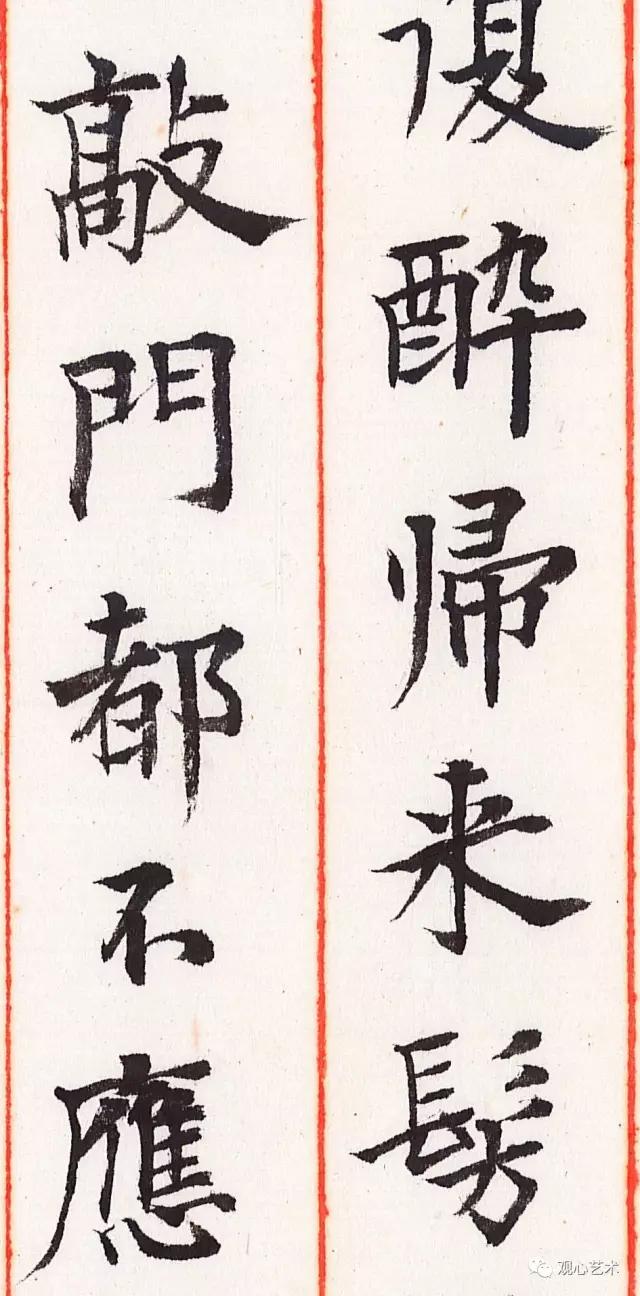 復醉帰来髣
敲門都不應
观心艺术